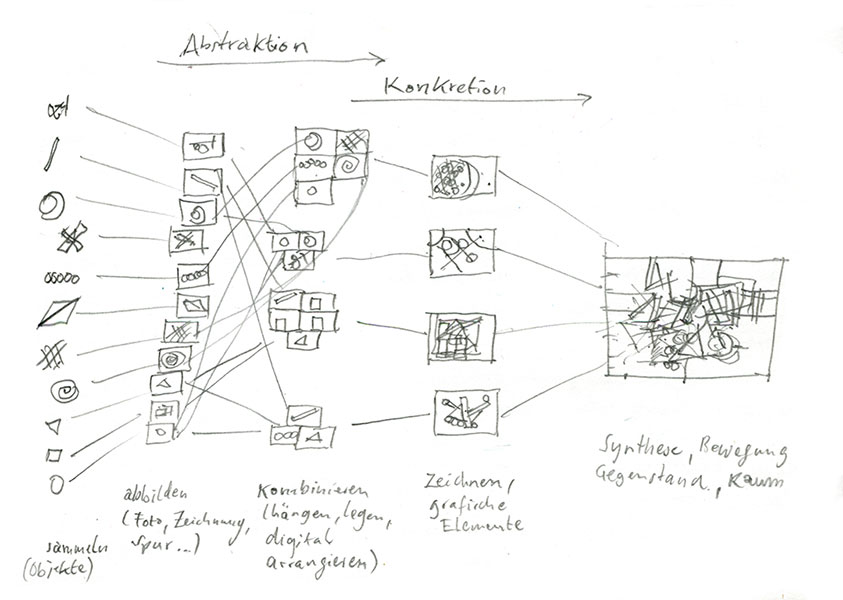 Abstraktion
Konkretion
sammeln
(Objekte)
abbilden
(Foto, Zeichnung,
Spur...)
Kombinieren
(hängen, legen,
digital
arrangieren).
Zeichnen,
grafische
Elemente
Synthese, Bewegung
Gegenstand, Raum